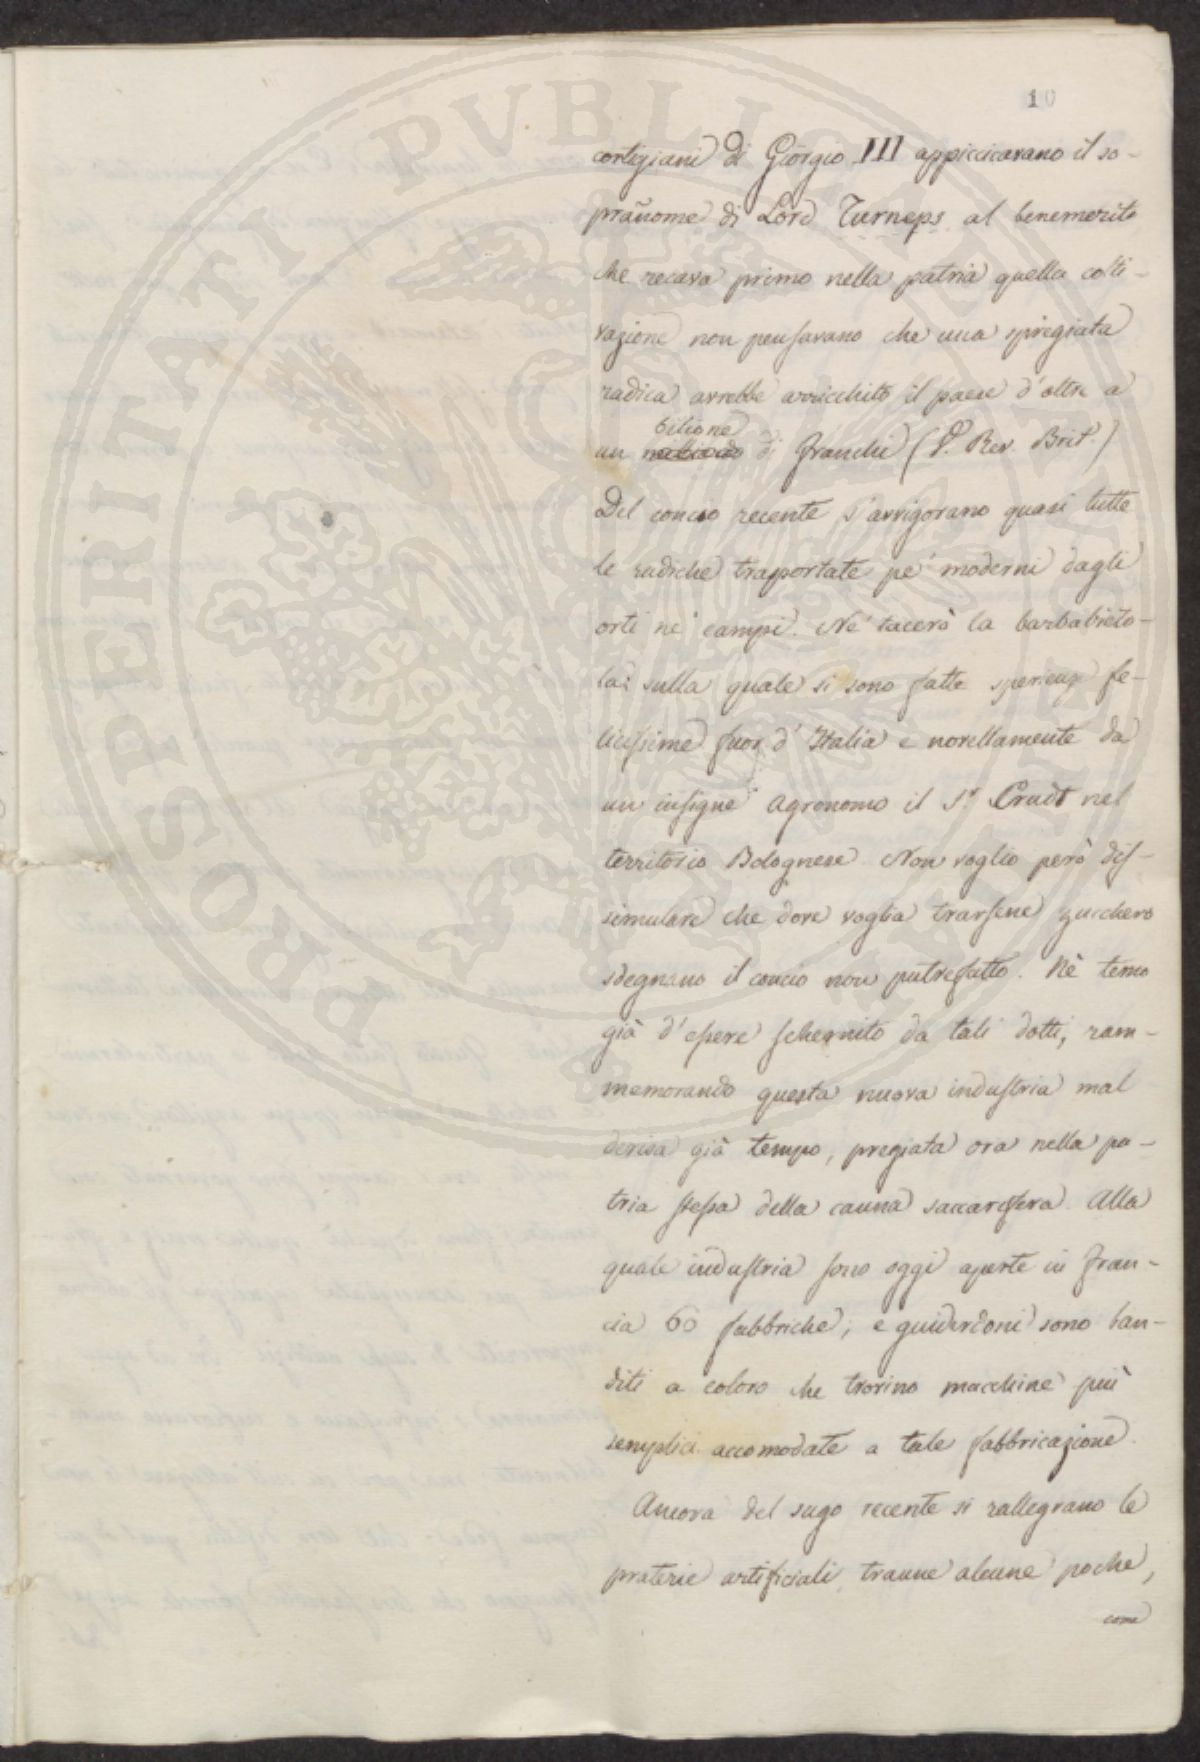 10
cortigiani di Giorgio III appiccicavano il so-
prañome di Lord Turneps al benemerito
che recava primo nella patria quella colti-
vazione non pensavano che una spregiata
radica avrebbe arricchito il paese d'oltre a
bilione
un milliardo di franchi (V. Rev. Brit.)
Del concio recente s'avvigorano quasi tutte
le radiche trasportate pe' moderni dagli
orti ne' campi. Ne' tacerò la barbabieto-
la: sulla quale si sono fatte sperienze fe-
licissime fuor d'Italia e novellamente da
un insigne agronomo il Sr. Crudt nel
territorio Bolognese. Non voglio però dis-
simulare che dove voglia trarsene zucchero
sdegnano il concio non putrefatto. Nè temo
già d'essere schernito da tali dotti, ram-
memorando questa nuova industria mal
derisa già tempo, pregiata ora nella pa-
tria stessa della canna saccarifera. Alla
quale industria sono oggi aperte in Fran-
cia 60 fabbriche; e guiderdoni sono ban-
diti a coloro che trovino macchine più
semplici accomodate a tale fabbricazione.
Ancora del sugo recente si rallegrano le
praterie artificiali tranne alcune poche,
come
PROSPERITATI PUBLICAE